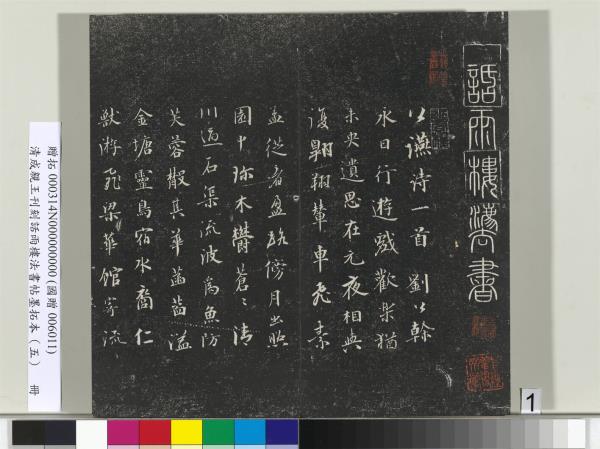 話雨樓灋書
公讌詩一首 劉公幹
永日行遊戲歡樂猶
未央遺思在元夜相與
復翱翔輦車飛素
盖從者盈路傍月出照
園中珍木欝蒼〻清
川過石渠流波為魚防
芙蓉散其華菡萏溢
金塘靈鳥宿水裔仁
獸游飛梁華館寄流
贈拓 000314N000000000 (國贈 006011)
清成親王刊刻話雨樓法書帖墨拓本（五） 冊
1